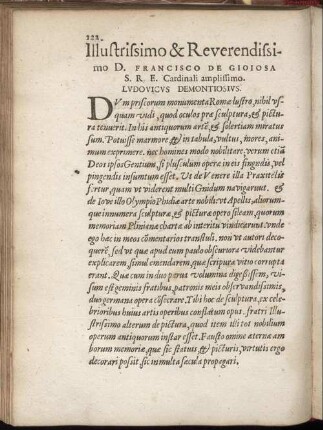 122.
Illustrissimo & Reverendissi-
mo D. FRANCISCO DE GIOIOSA
S. R. E. Cardinali amplissimo.
LVDOVICVS DEMONTIOSIVS.
DVm priscorum monumenta Romæ lustro, nihil vs-
quam vndi, quod oculos præ sculptura, & pictu-
ra tenuerit. In his antiquorum artē, & solertiam miratus
sum. Potuisse marmore & in tabula, vultus, mores, ani-
mum exprimere. nec humines modo nobilitare: verum etiā
Deos ipsos Gentium, si plusculum operæ in eis fingendis, vel
pingendis insumtum esset. Ut de Venere illa Praxitelis
fertur, quam vt viderent multi Gnidum navigarunt. &
de Iove illo Olympio Phidiæ arte nobili: vt Apellis, aliorum-
que innumera sculpturæ, & picturæ opera sileam, quorum
memoriam Plinianæ chartæ ab interitu vindicarunt. vnde
ego hæc in meos cōmentarios transtuli. non vt autori deco-
querē, sed vt quæ apud eum paulo obscuriora videbantur
explicarem, simul emendarem, quæ scripturæ vitio corrupta
erant. Quæ cum in duo parua volumina digessissem, vi-
sum est geminis fratribus, patronis meis observandissimis,
duo germana opera cōsecrare. Tibi hoc de sculptura, ex cele-
brioribus huius artis operibus conflatum opus. fratri Illu-
strissimo alterum de pictura, quod item illi tot nobilium
operum antiquorum instar esset. Fausto omine æterna am-
borum memoriæ, quæ sic statuis, & picturis, vertutis ergo
decorari possit, sic in multa sæcula propagari.